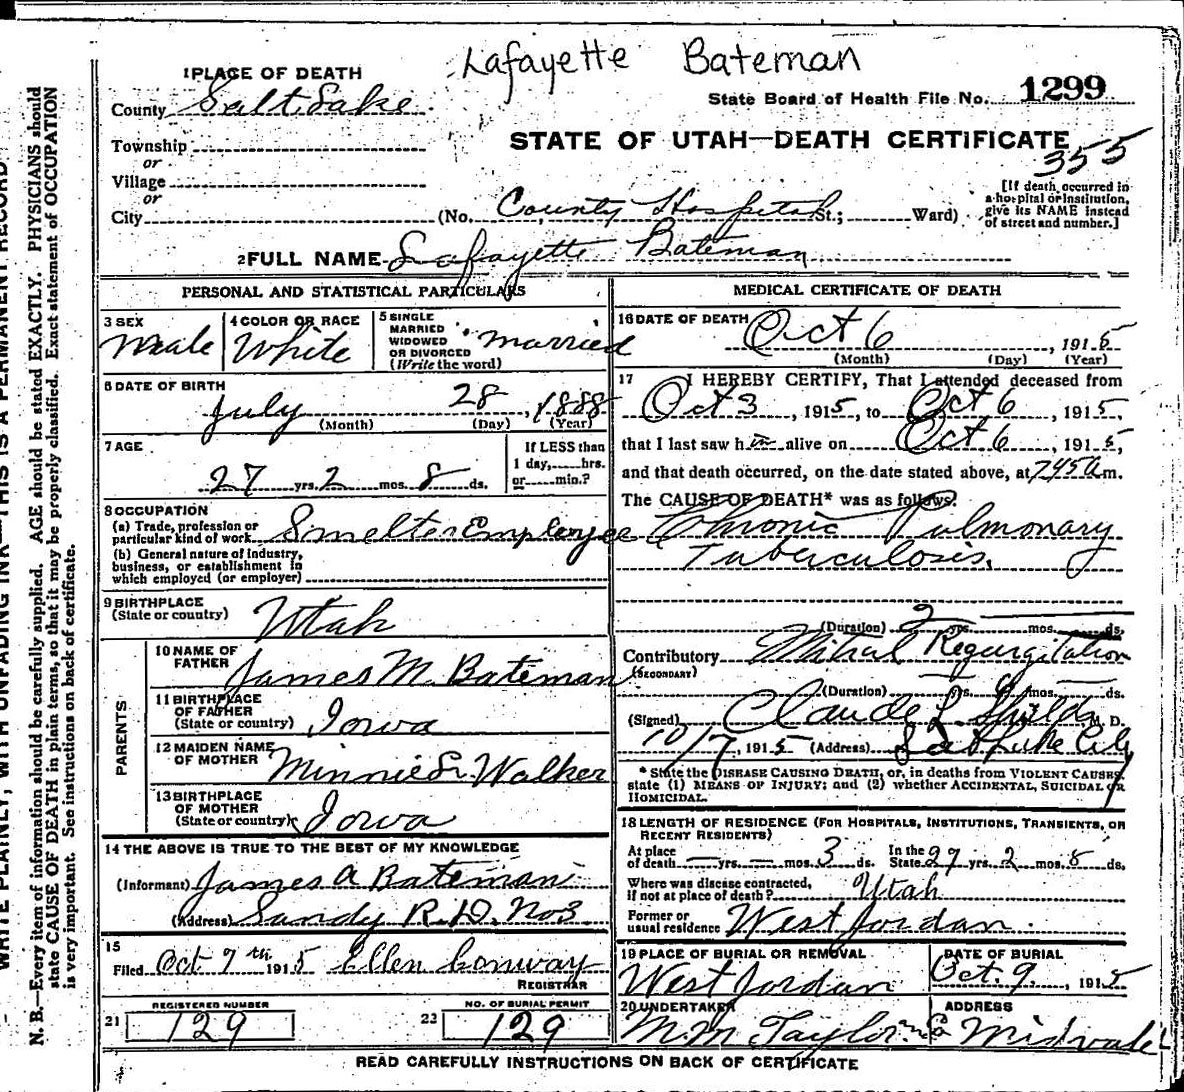 Lafayette Bateman
1 PLACE OF DEATH
County Salt Lake
State Board of Health File No. 1299
Township
STATE OF UTAH—DEATH CERTIFICATE
355
or
Village
or
City (No. County Hospital St.; Ward)
[If death occurred in
a hospital or institution,
give its NAME instead
of street and number.]
2 FULL NAME Lafayette Bateman
PERSONAL AND STATISTICAL PARTICULARS
3 SEX
Male
4 COLOR OR RACE
White
5 SINGLE
MARRIED
WIDOWED
OR DIVORCED
(Write the word)
married
6 DATE OF BIRTH
July 28, 1888
(Month) (Day) (Year)
7 AGE
27 yrs. 2 mos. 8 ds.
If LESS than
1 day,......hrs.
or......min.?
8 OCCUPATION
(a) Trade, profession or
particular kind of work Smelter Employee
(b) General nature of industry,
business, or establishment in
which employed (or employer)
9 BIRTHPLACE
(State or country) Utah
PARENTS
10 NAME OF
FATHER James M. Bateman
11 BIRTHPLACE
OF FATHER
(State or country) Iowa
12 MAIDEN NAME
OF MOTHER Minnie Walker
13 BIRTHPLACE
OF MOTHER
(State or country) Iowa
14 THE ABOVE IS TRUE TO THE BEST OF MY KNOWLEDGE
(Informant) James A Bateman
(Address) Sandy R.D. No 3
15
Filed Oct 9th 1915 Ellen Conway
REGISTRAR
REGISTERED NUMBER
21 129
NO. OF BURIAL PERMIT
22 129
MEDICAL CERTIFICATE OF DEATH
16 DATE OF DEATH Oct 6, 1915
(Month) (Day) (Year)
17 I HEREBY CERTIFY, That I attended deceased from
Oct 3, 1915, to Oct 6, 1915,
that I last saw him alive on Oct 6, 1915,
and that death occurred, on the date stated above, at 745 A m.
The CAUSE OF DEATH* was as follows:
Chronic Pulmonary
Tuberculosis.
(Duration) 2 yrs. mos. ds.
Contributory Mitral Regurgitation
(SECONDARY)
(Duration) yrs. mos. ds.
(Signed) Claude L. Shields M. D.
10/7, 1915 (Address) Salt Lake City
* State the DISEASE CAUSING DEATH, or, in deaths from VIOLENT CAUSES,
state (1) MEANS OF INJURY; and (2) whether ACCIDENTAL, SUICIDAL OR
HOMICIDAL.
18 LENGTH OF RESIDENCE (FOR HOSPITALS, INSTITUTIONS, TRANSIENTS, OR
RECENT RESIDENTS)
At place
of death — yrs. — mos. 3 ds. In the
State 27 yrs. 2 mos. 8 ds.
Where was disease contracted,
if not at place of death? Utah
Former or
usual residence West Jordan
19 PLACE OF BURIAL OR REMOVAL
West Jordan
DATE OF BURIAL
Oct. 9, 1915
20 UNDERTAKER
M. M. Taylor
ADDRESS
Midvale
READ CAREFULLY INSTRUCTIONS ON BACK OF CERTIFICATE
WRITE PLAINLY, WITH UNFADING INK—THIS IS A PERMANENT RECORD
N. B.—Every item of information should be carefully supplied. AGE should be stated EXACTLY. PHYSICIANS should
state CAUSE OF DEATH in plain terms, so that it may be properly classified. Exact statement of OCCUPATION
is very important. See instructions on back of certificate.